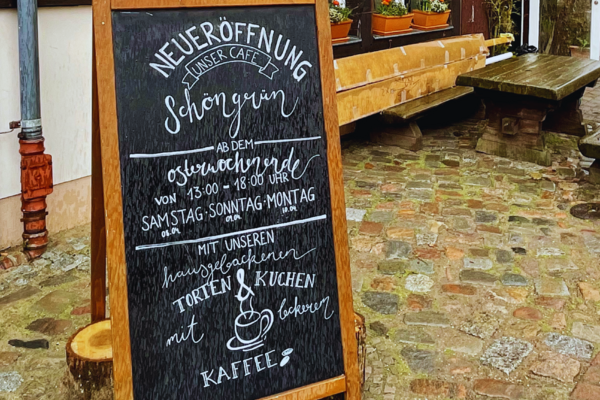 NEUERÖFFNUNG
UNSER CAFE
Schöngrün
AB DEM
Osterwochenende
VON 13:00 - 18:00 UHR
SAMSTAG · SONNTAG · MONTAG
08.04. 09.04. 10.04.
MIT UNSEREN
hausgebackenen
TORTEN & KUCHEN
mit leckeren
KAFFEE